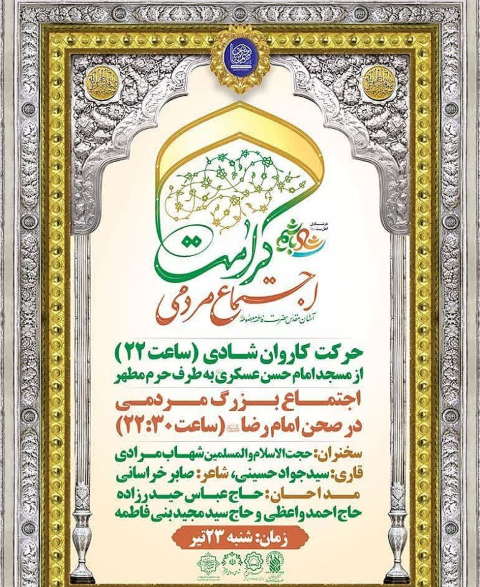 در شادی
اهل بیت
شاد باشیم
کرامت
اجتماع مردمی
آستان مقدس حضرت فاطمه معصومه
حرکت کاروان شادی (ساعت ۲۲)
از مسجد امام حسن عسکری به طرف حرم مطهر
اجتماع بزرگ مردمی
در صحن امام رضا (ساعت ۲۲:۳۰)
سخنران: حجت الاسلام والمسلمین شهاب مرادی
قاری: سیدجواد حسینی، شاعر: صابر خراسانی
مداحان: حاج عباس حیدرزاده
حاج احمد واعظی و حاج سید مجید بنی فاطمه
زمان: شنبه ۲۳ تیر